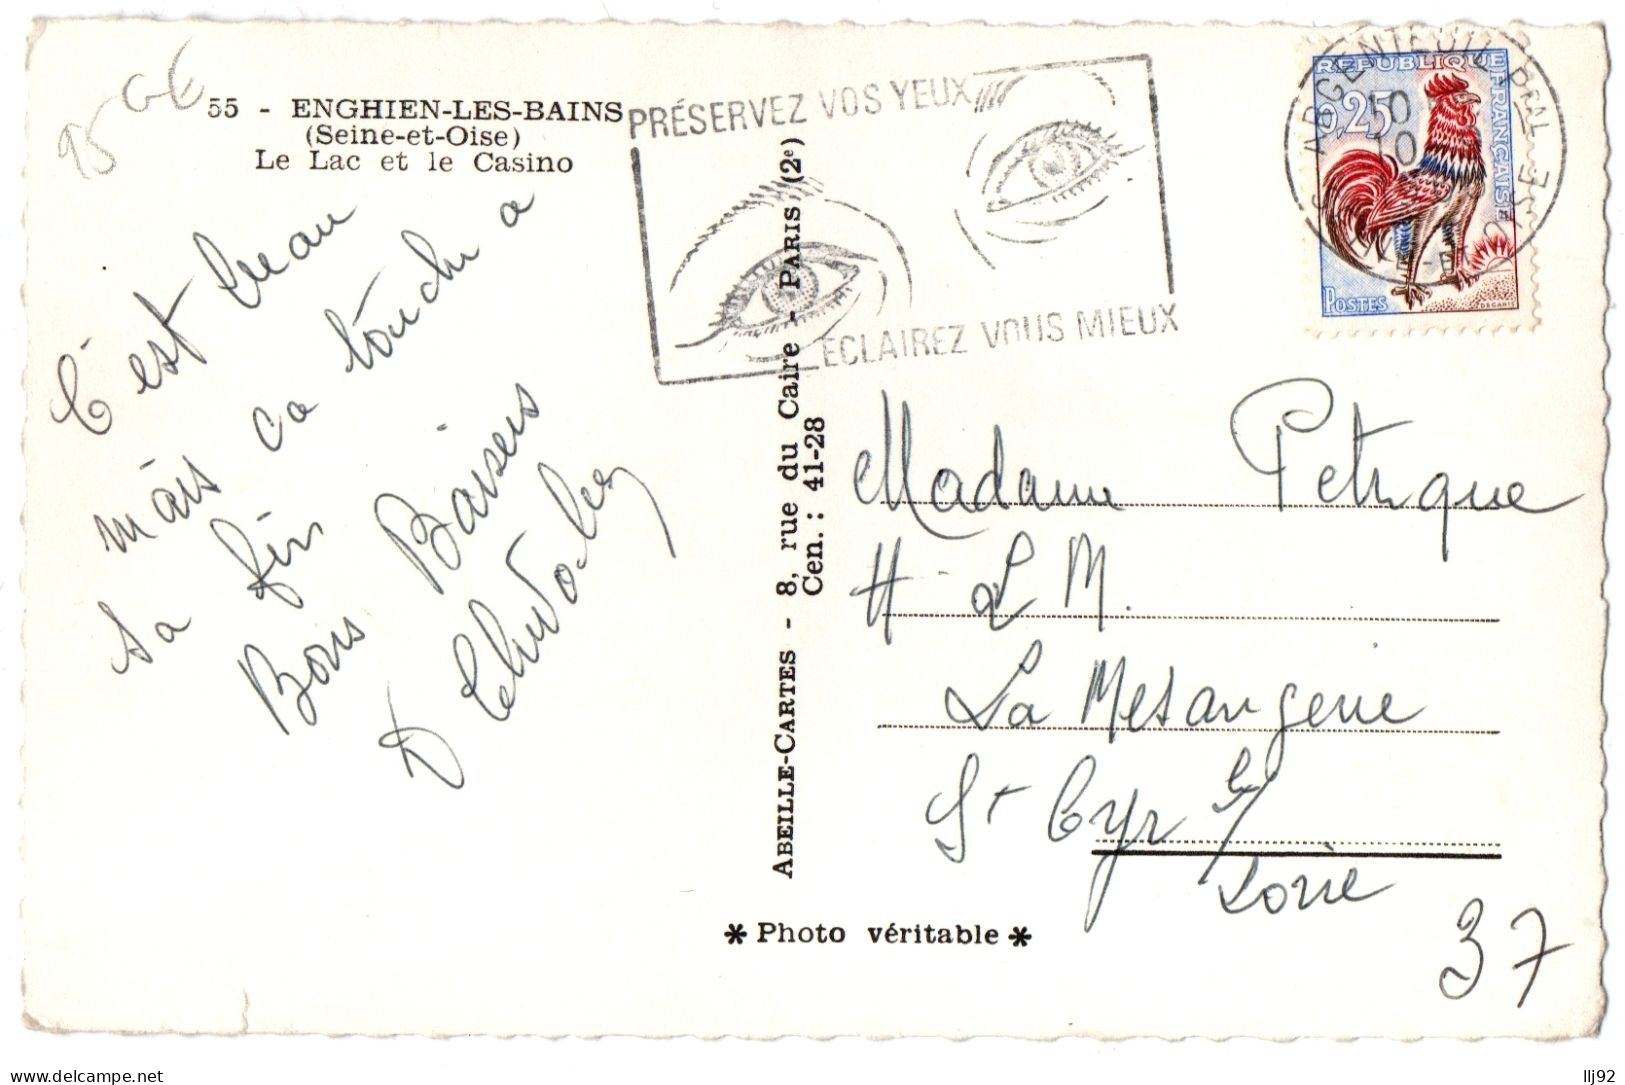 95 GE
55 - ENGHIEN-LES-BAINS
(Seine-et-Oise)
Le Lac et le Casino
C'est beau
mais ca touche a
sa fin
Bons Baisers
PRÉSERVEZ VOS YEUX
ECLAIREZ VOUS MIEUX
ARGENTEUIL-PPAL
SEINE-ET-OISE
RÉPUBLIQUE FRANÇAISE
0,25
POSTES
DECARIS
ABEILLE-CARTES - 8, rue du Caire - PARIS (2e)
Cen. : 41-28
Madame Petrique
H L M.
La Mesangerie
St Cyr s/
Loire
37
* Photo véritable *
delcampe.net
llj92